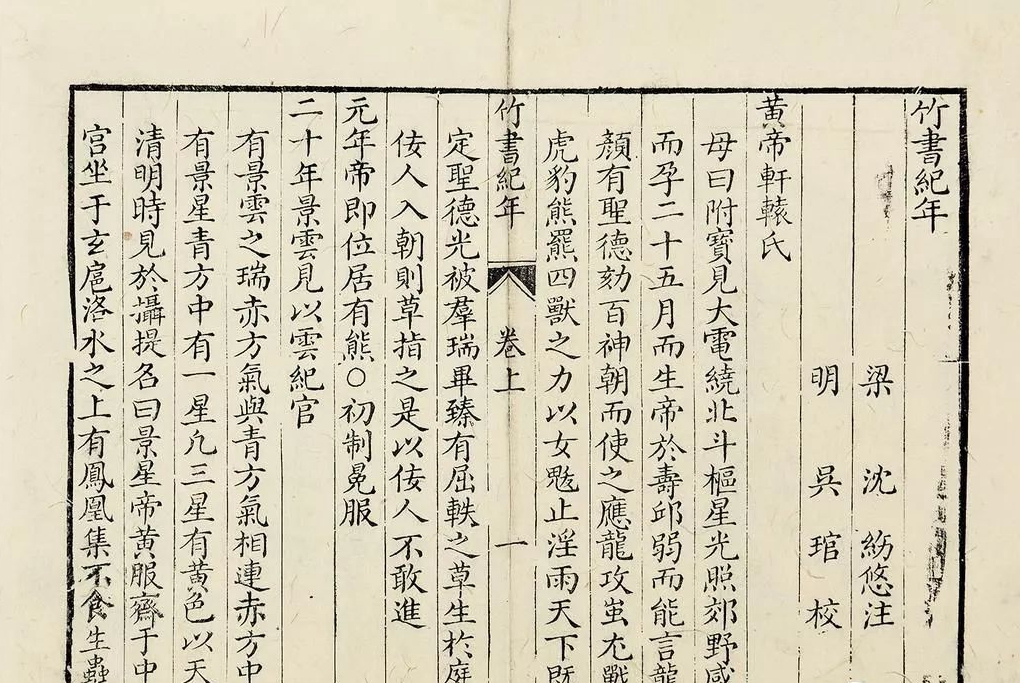 竹書紀年
梁 沈 約 悠 注
明 吳 琯 校
黃帝軒轅氏
母曰附寶見大電繞北斗樞星光照郊野感
而孕二十五月而生帝於壽邱弱而能言龍
顏有聖德劾百神朝而使之應龍攻蚩尤戰
虎豹熊羆四獸之力以女魃止淫雨天下既
竹書紀年 卷上 一
定聖德光被羣瑞畢臻有屈軼之草生於庭
佞人入朝則草指之是以佞人不敢進
元年帝即位居有熊○初制冕服
二十年景雲見以雲紀官
有景雲之瑞赤方氣與青方氣相連赤方中
有景星青方中有一星凢三星有黃色以天
清明時見於攝提名曰景星帝黃服齋于中
宫坐于玄扈洛水之上有鳳凰集不食生蟲